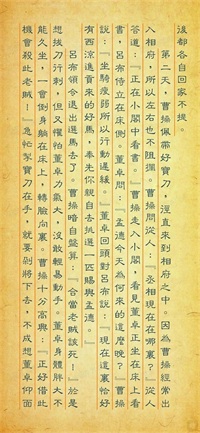 後都各自回家不提。
第二天，曹操佩帶好寶刀，逕直來到相府之中。因為曹操經常出
入相府，所以左右也不阻攔。曹操問從人：『丞相現在在哪裏？』從人
答道：『正在小閣中看書。』曹操走入小閣，看見董卓正坐在床上看
書，呂布侍立在床側。董卓問：『孟德今天為何來的這麼晚？』曹操
說：『坐騎疲弱所以行動遲緩。』董卓回頭對呂布說：『現在這裏恰好
有西涼進貢來的好馬，奉先你親自去挑選一匹賜與孟德。』
呂布領令退出選馬去了。曹操暗自盤算：『合當老賊該死！』於是
想拔刀行刺，但又懼怕董卓力氣大，沒敢輕易動手。董卓身體胖大不
能久坐，一會倒身躺在床上，轉臉向裏。曹操十分高興：『正好借此
機會殺此老賊！』急忙掣寶刀在手，就要剁將下去，不成想董卓仰面